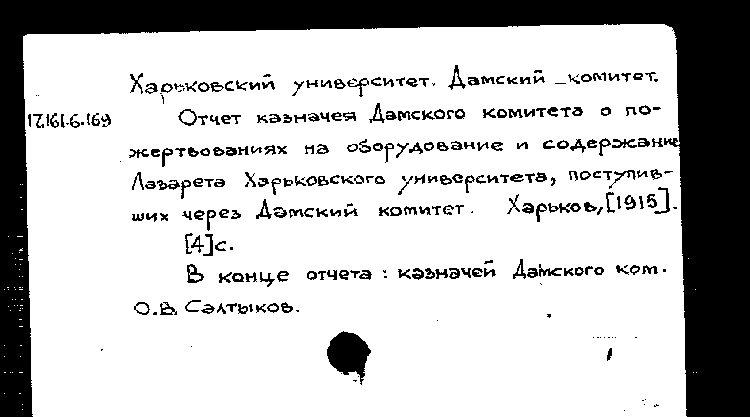 Харьковский университет. Дамский комитет.
17.161.6.169 Отчет казначея Дамского комитета о по-
жертвованиях на оборудование и содержание
Лазарета Харьковского университета, поступив-
ших через Дамский комитет. Харьков, [1915].
[4]с.
В конце отчета: казначей Дамского ком.
О.В. Салтыков.